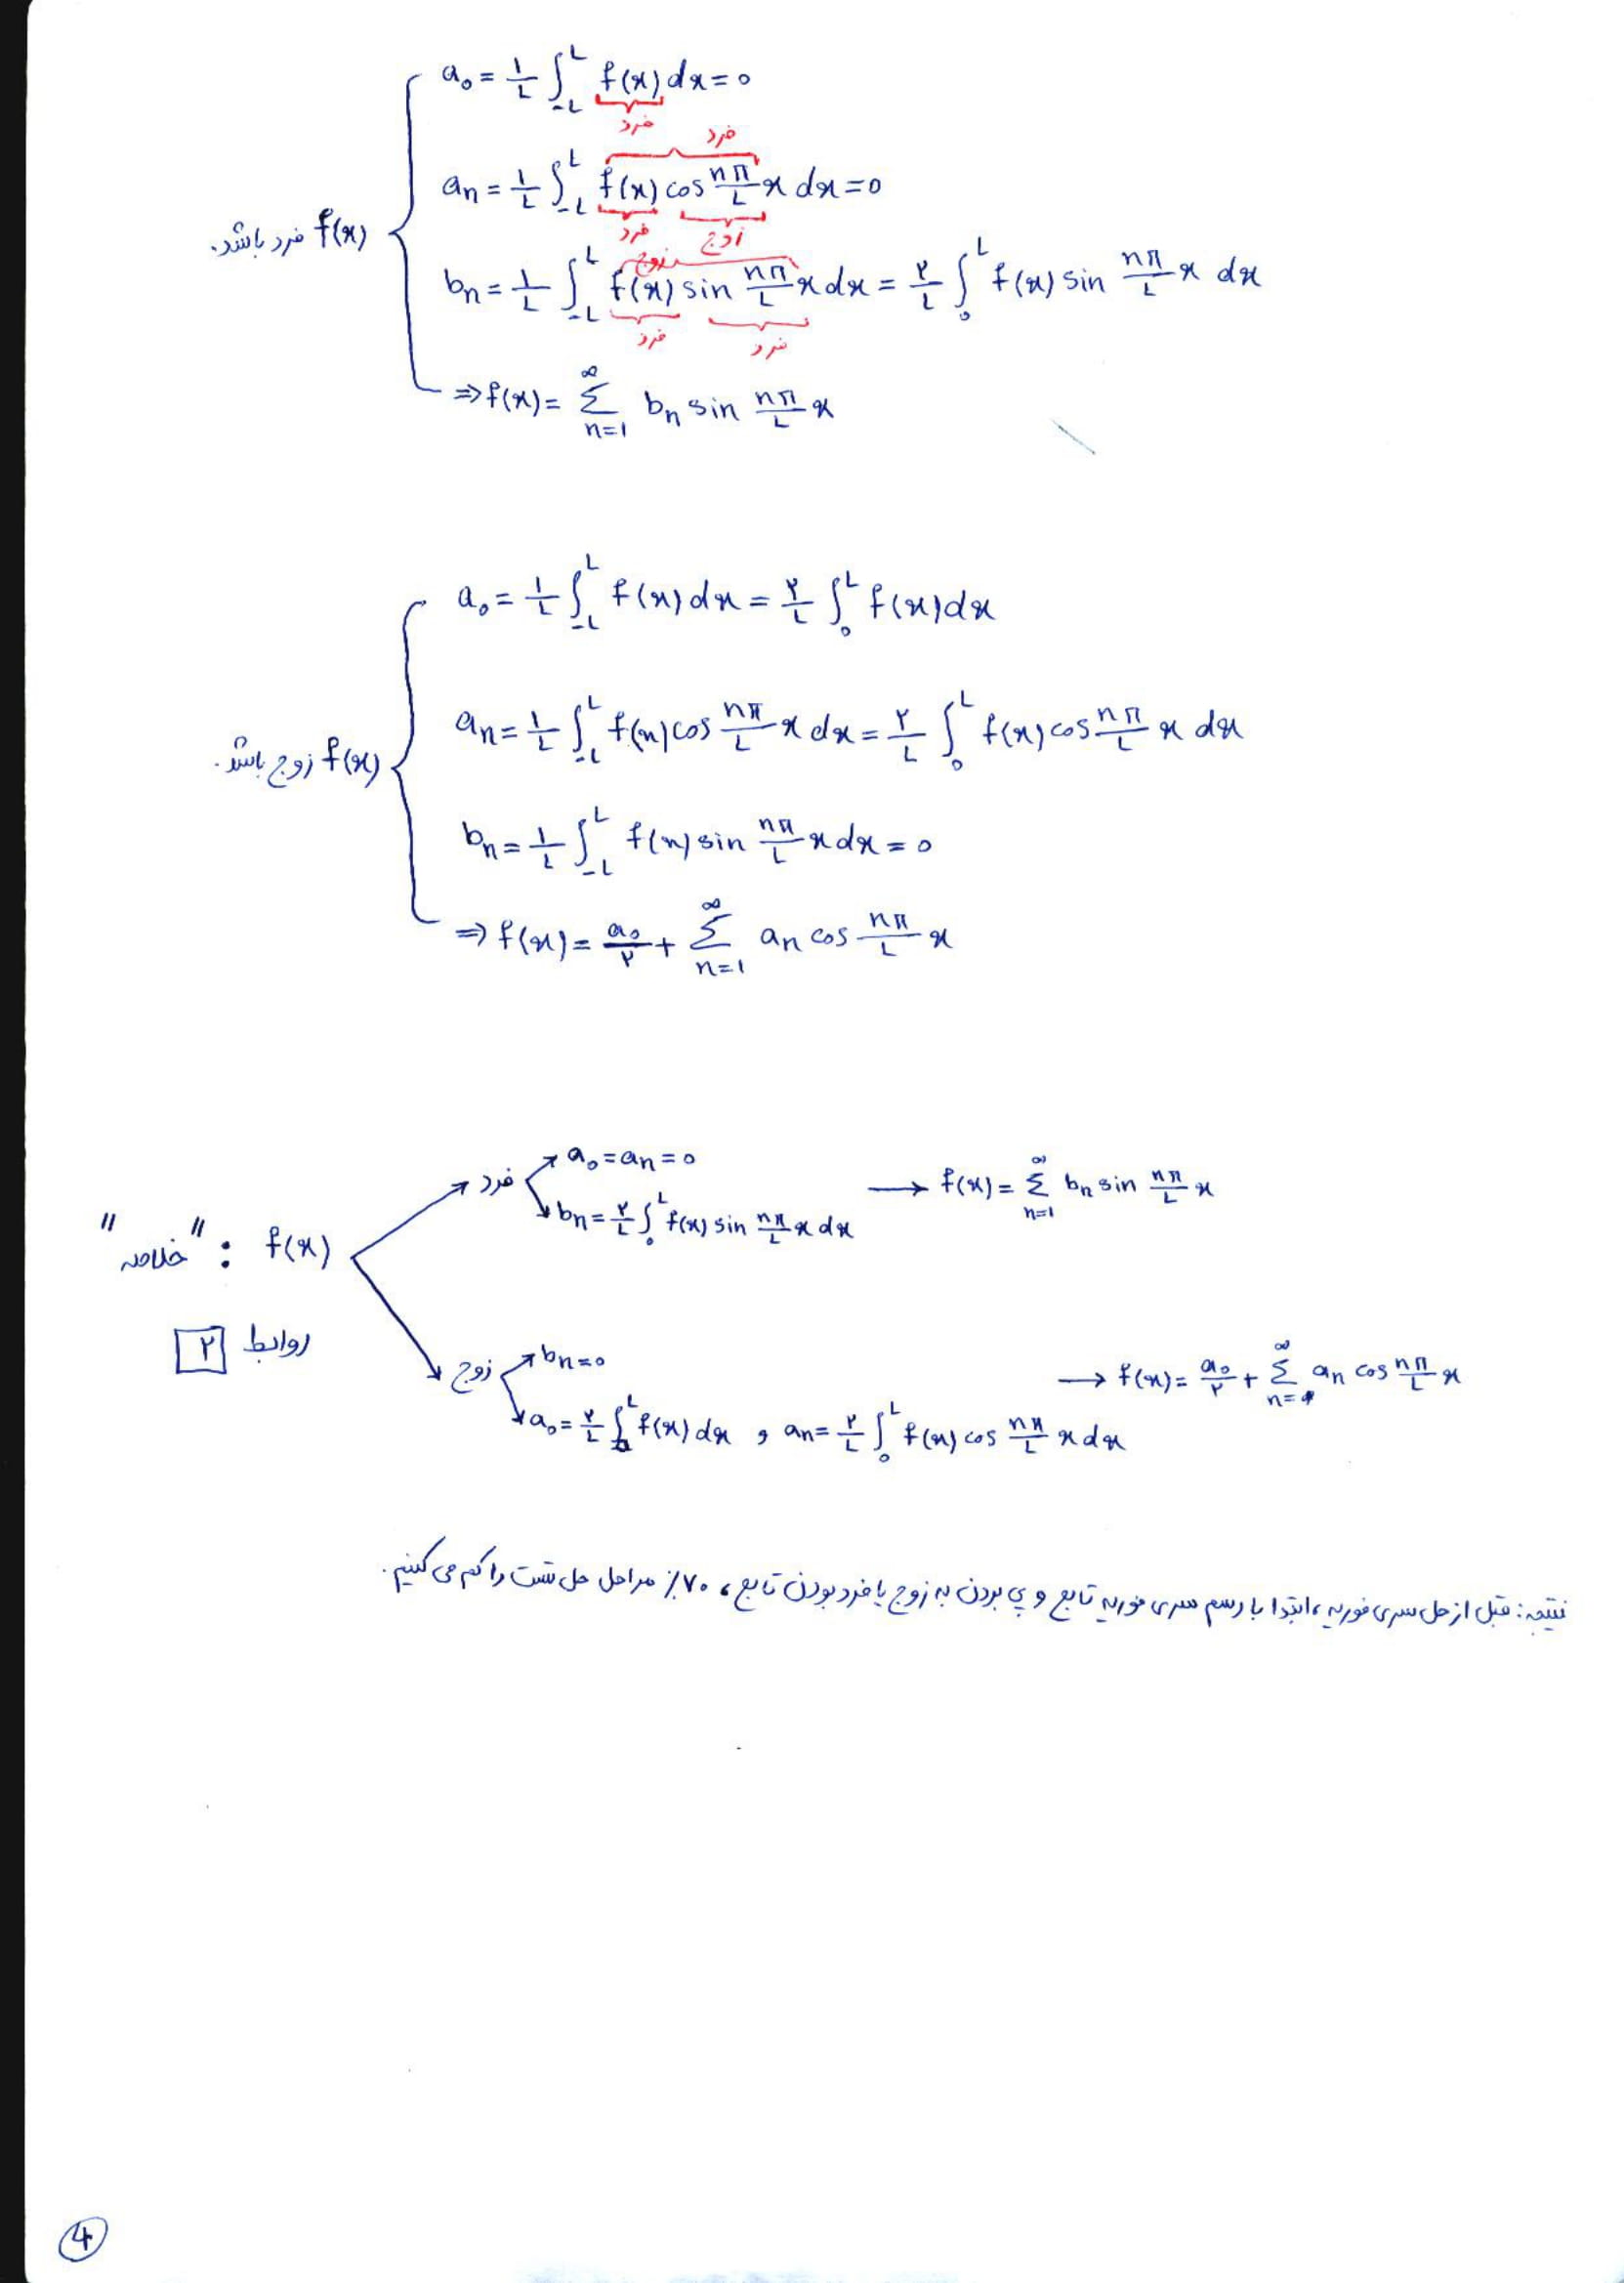 a₀ = ۱/L ∫_{-L}^{L} f(x) dx = 0
فرد
فرد
aₙ = ۱/L ∫_{-L}^{L} f(x) cos nπ/L x dx = 0
فرد زوج
f(x) فرد باشد.
زوج
bₙ = ۱/L ∫_{-L}^{L} f(x) sin nπ/L x dx = ۲/L ∫_{0}^{L} f(x) sin nπ/L x dx
فرد فرد
⇒ f(x) = Σ_{n=1}^{∞} bₙ sin nπ/L x
a₀ = ۱/L ∫_{-L}^{L} f(x) dx = ۲/L ∫_{0}^{L} f(x) dx
aₙ = ۱/L ∫_{-L}^{L} f(x) cos nπ/L x dx = ۲/L ∫_{0}^{L} f(x) cos nπ/L x dx
f(x) زوج باشد.
bₙ = ۱/L ∫_{-L}^{L} f(x) sin nπ/L x dx = 0
⇒ f(x) = a₀/۲ + Σ_{n=1}^{∞} aₙ cos nπ/L x
"خلاصه" : f(x)
فرد
a₀ = aₙ = 0
bₙ = ۲/L ∫_{0}^{L} f(x) sin nπ/L x dx
→ f(x) = Σ_{n=1}^{∞} bₙ sin nπ/L x
روابط ۲
زوج
bₙ = 0
a₀ = ۲/L ∫_{0}^{L} f(x) dx , aₙ = ۲/L ∫_{0}^{L} f(x) cos nπ/L x dx
→ f(x) = a₀/۲ + Σ_{n=1}^{∞} aₙ cos nπ/L x
نتیجه: قبل از حل سری فوریه، ابتدا با رسم سری فوریه تابع و پی بردن به زوج یا فرد بودن تابع، ۷۰٪ مراحل حل تست را کم می کنیم.
4